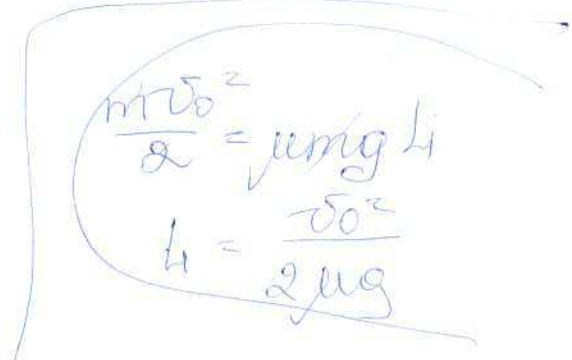 mv₀²/2 = μmg L
L = v₀²/2μg